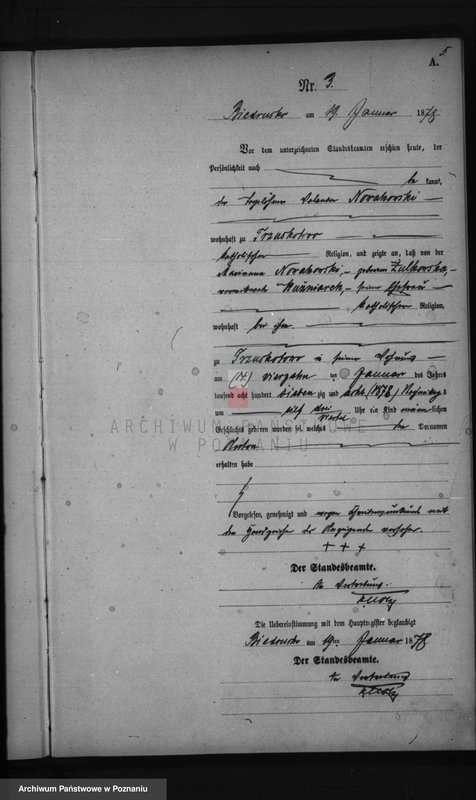 5
A.
Nr. 3.
Biedrusko am 19. Januar 1878
Vor dem unterzeichneten Standesbeamten erschien heute, der
Persönlichkeit nach
be kannt,
der Tagelöhner Valentin Nowakowski
wohnhaft zu Trzuskotowo
katholischer Religion, und zeigte an, daß von der
Marianna Nowakowski, geborene Zulkowska,
verwittwete Kuźniarek, seiner Ehefrau
katholischer Religion,
wohnhaft bei ihm
zu Trzuskotowo in seiner Wohnung
am (14.) vierzehn ten Januar des Jahres
tausend acht hundert sieben zig und acht (1878) Nachmittags
um elf drei Viertel Uhr ein Kind männlichen
Geschlechts geboren worden sei, welches den Vornamen
Anton
erhalten habe
Vorgelesen, genehmigt und wegen Schreibensunkunde mit
den Handzeichen des Anzeigenden versehen.
+ + +
Der Standesbeamte.
In Vertretung.
Die Uebereinstimmung mit dem Hauptregister beglaubigt
Biedrusko am 19ten Januar 1878
Der Standesbeamte.
In Vertretung
ARCHIWUM PAŃSTWOWE
W POZNANIU
Archiwum Państwowe w Poznaniu